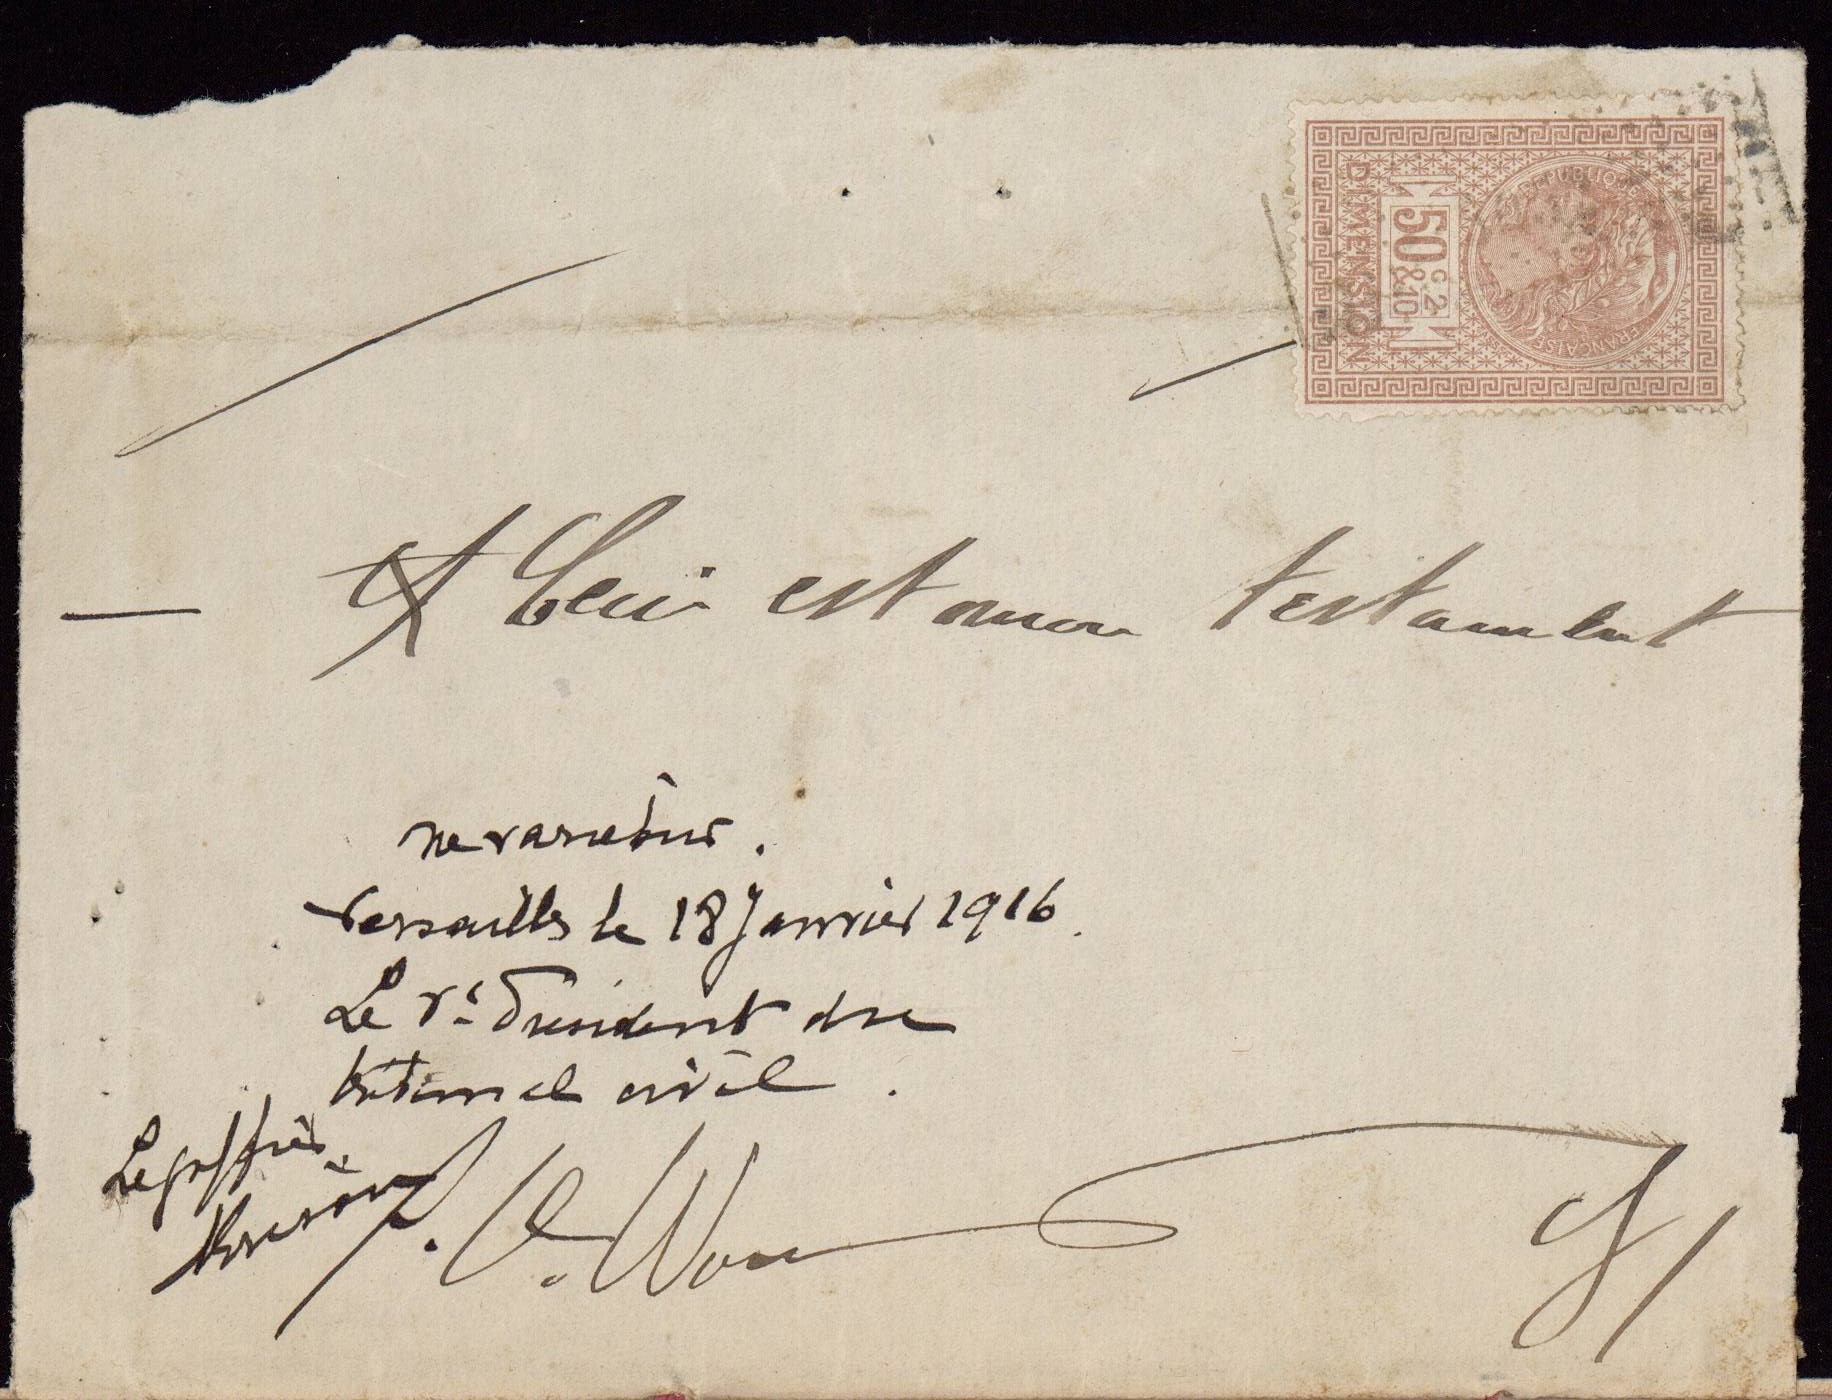 RÉPUBLIQUE FRANÇAISE
50 C. & 2/10
DIMENSION
Ceci est mon testament
ne varietur.
Versailles le 18 Janvier 1916.
Le Vs Président du
tribunal civil.
Le greffier